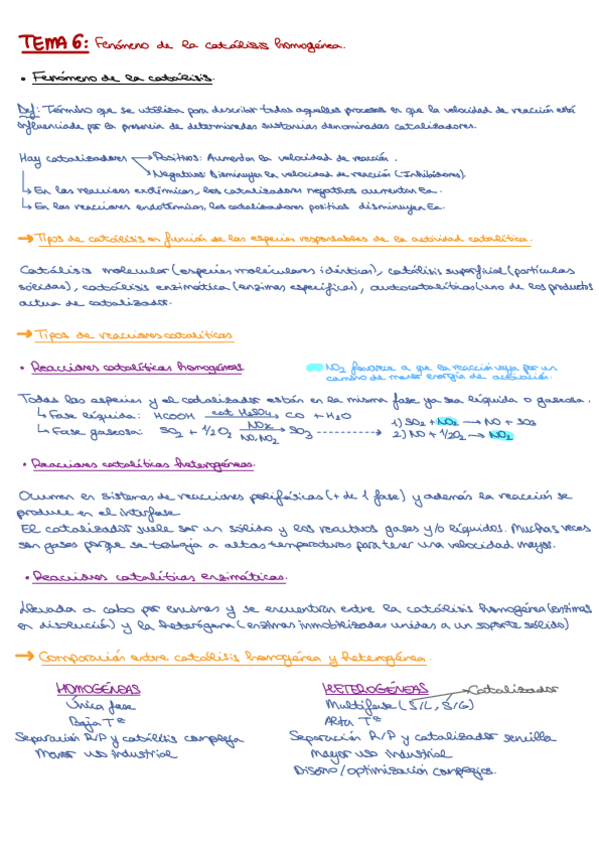 TEMA 6: Fenómeno de la catálisis homogénea.
• Fenómeno de la catálisis.
Def: Término que se utiliza para describir todos aquellos procesos en que la velocidad de reacción está
influenciada por la presencia de determinadas sustancias denominadas catalizadores.
Hay catalizadores → Positivos: Aumentan la velocidad de reacción.
→ Negativos: Disminuyen la velocidad de reacción (Inhibidores)
↳ En las reacciones exotérmicas, los catalizadores negativos aumentan Ea.
↳ En las reacciones endotérmicas, los catalizadores positivos disminuyen Ea.
→ Tipos de catálisis en función de las especies responsables de la actividad catalítica.
Catálisis molecular (especies moleculares idénticas), catálisis superficial (partículas
sólidas), catálisis enzimática (enzimas específicas), autocatalíticas (uno de los productos
actua de catalizador.
→ Tipos de reacciones catalíticas
• Reacciones catalíticas homogéneas
NO2 favorece a que la reacción vaya por un
camino de menor energía de activación.
Todas las especies y el catalizador están en la misma fase ya sea líquida o gaseosa.
↳ Fase líquida: HCOOH cat H2SO4 → CO + H2O
↳ Fase gaseosa: SO2 + 1/2 O2 NOx NO, NO2 → SO3 -----------→
1) SO2 + NO2 → NO + SO3
2) NO + 1/2 O2 → NO2
• Reacciones catalíticas heterogéneas.
Ocurren en sistemas de reacciones polifásicas (+ de 1 fase) y además la reacción se
produce en el interfase
El catalizador suele ser un sólido y los reactivos gases y/o líquidos. Muchas veces
son gases porque se trabaja a altas temperaturas para tener una velocidad mayor.
• Reacciones catalíticas enzimáticas.
Llevada a cabo por enzimas y se encuentran entre la catálisis homogénea (enzimas
en disolución) y la heterógena (enzimas inmobilizadas unidas a un soporte sólido)
→ Comparación entre catálisis homogénea y heterogénea.
HOMOGÉNEAS
Única fase
Baja Tª
Separación R/P y catálisis compleja
Menor uso industrial
HETEROGÉNEAS → Catalizador
Multifase (S/L, S/G)
Alta Tª
Separación R/P y catalizador sencilla
Mayor uso industrial
Diseño/optimización complejos.